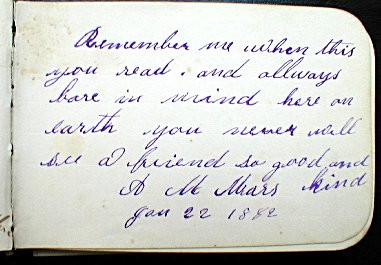 Remember me when this
you read . and allways
bare in mind here on
earth you never will
see a friend so good and
kind
A M Mears
Jan 22 1882